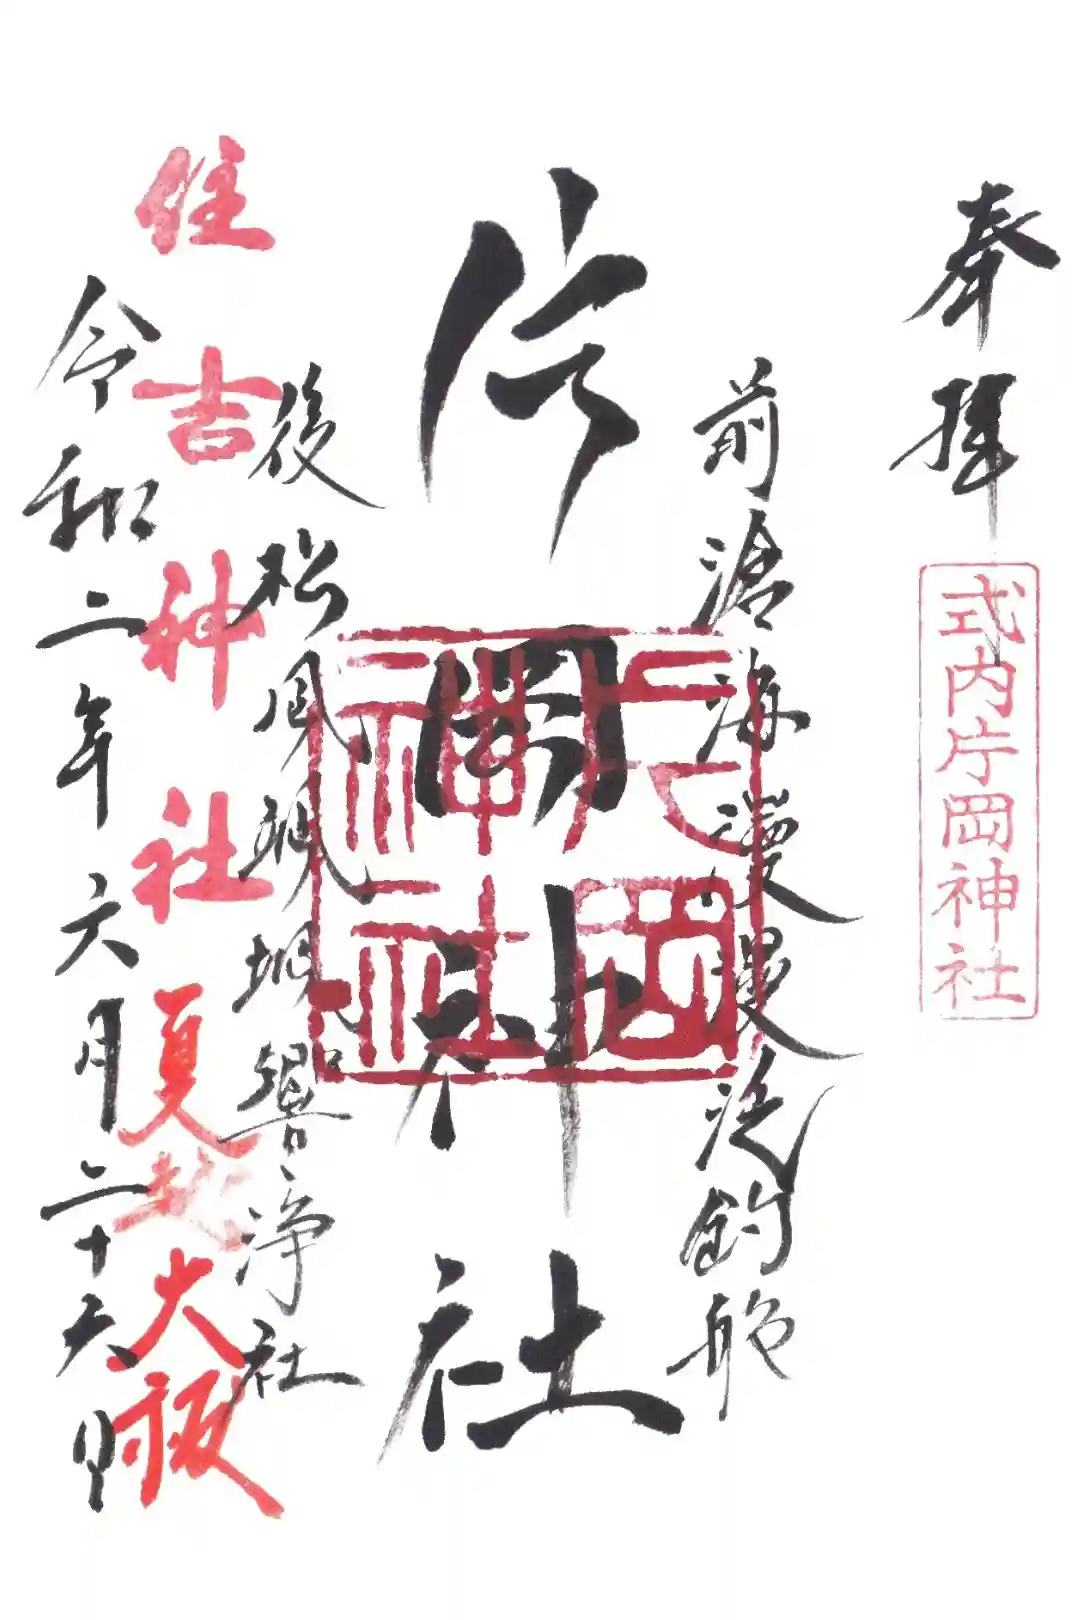 奉拝
式内片岡神社
前滄海漫漫泛釣船
片岡神社
片岡神社
後松風颯颯響浄社
住吉神社夏越大祓
令和二年六月二十六日